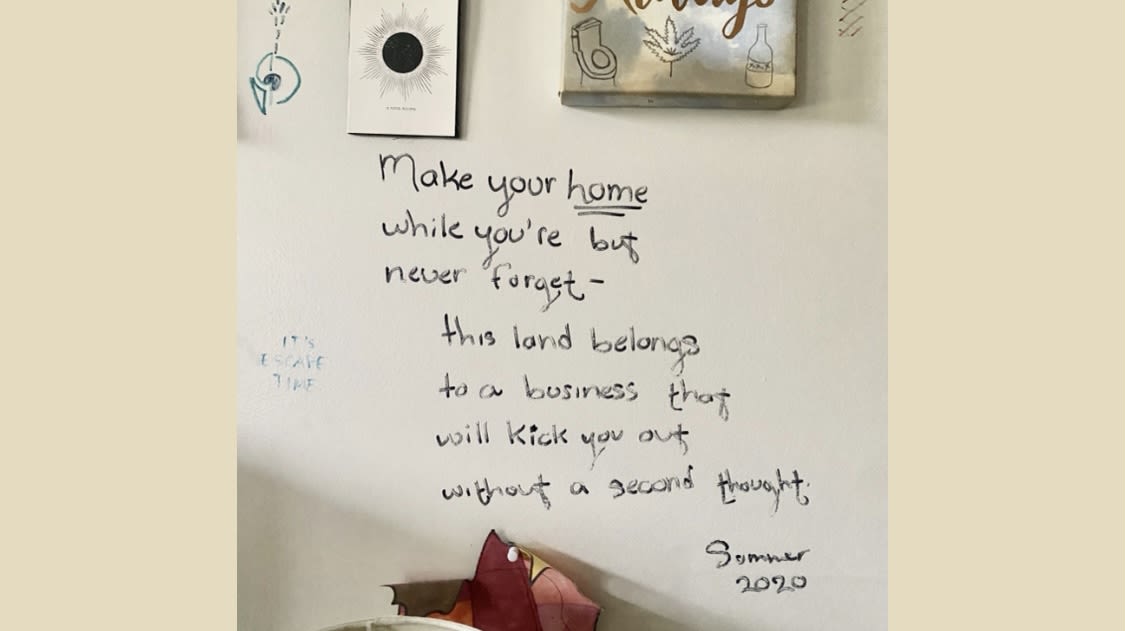 Always
Make your home
while you're but
never forget-
this land belongs
to a business that
will kick you out
without a second thought.
Summer
2020
IT'S
ESCAPE
TIME